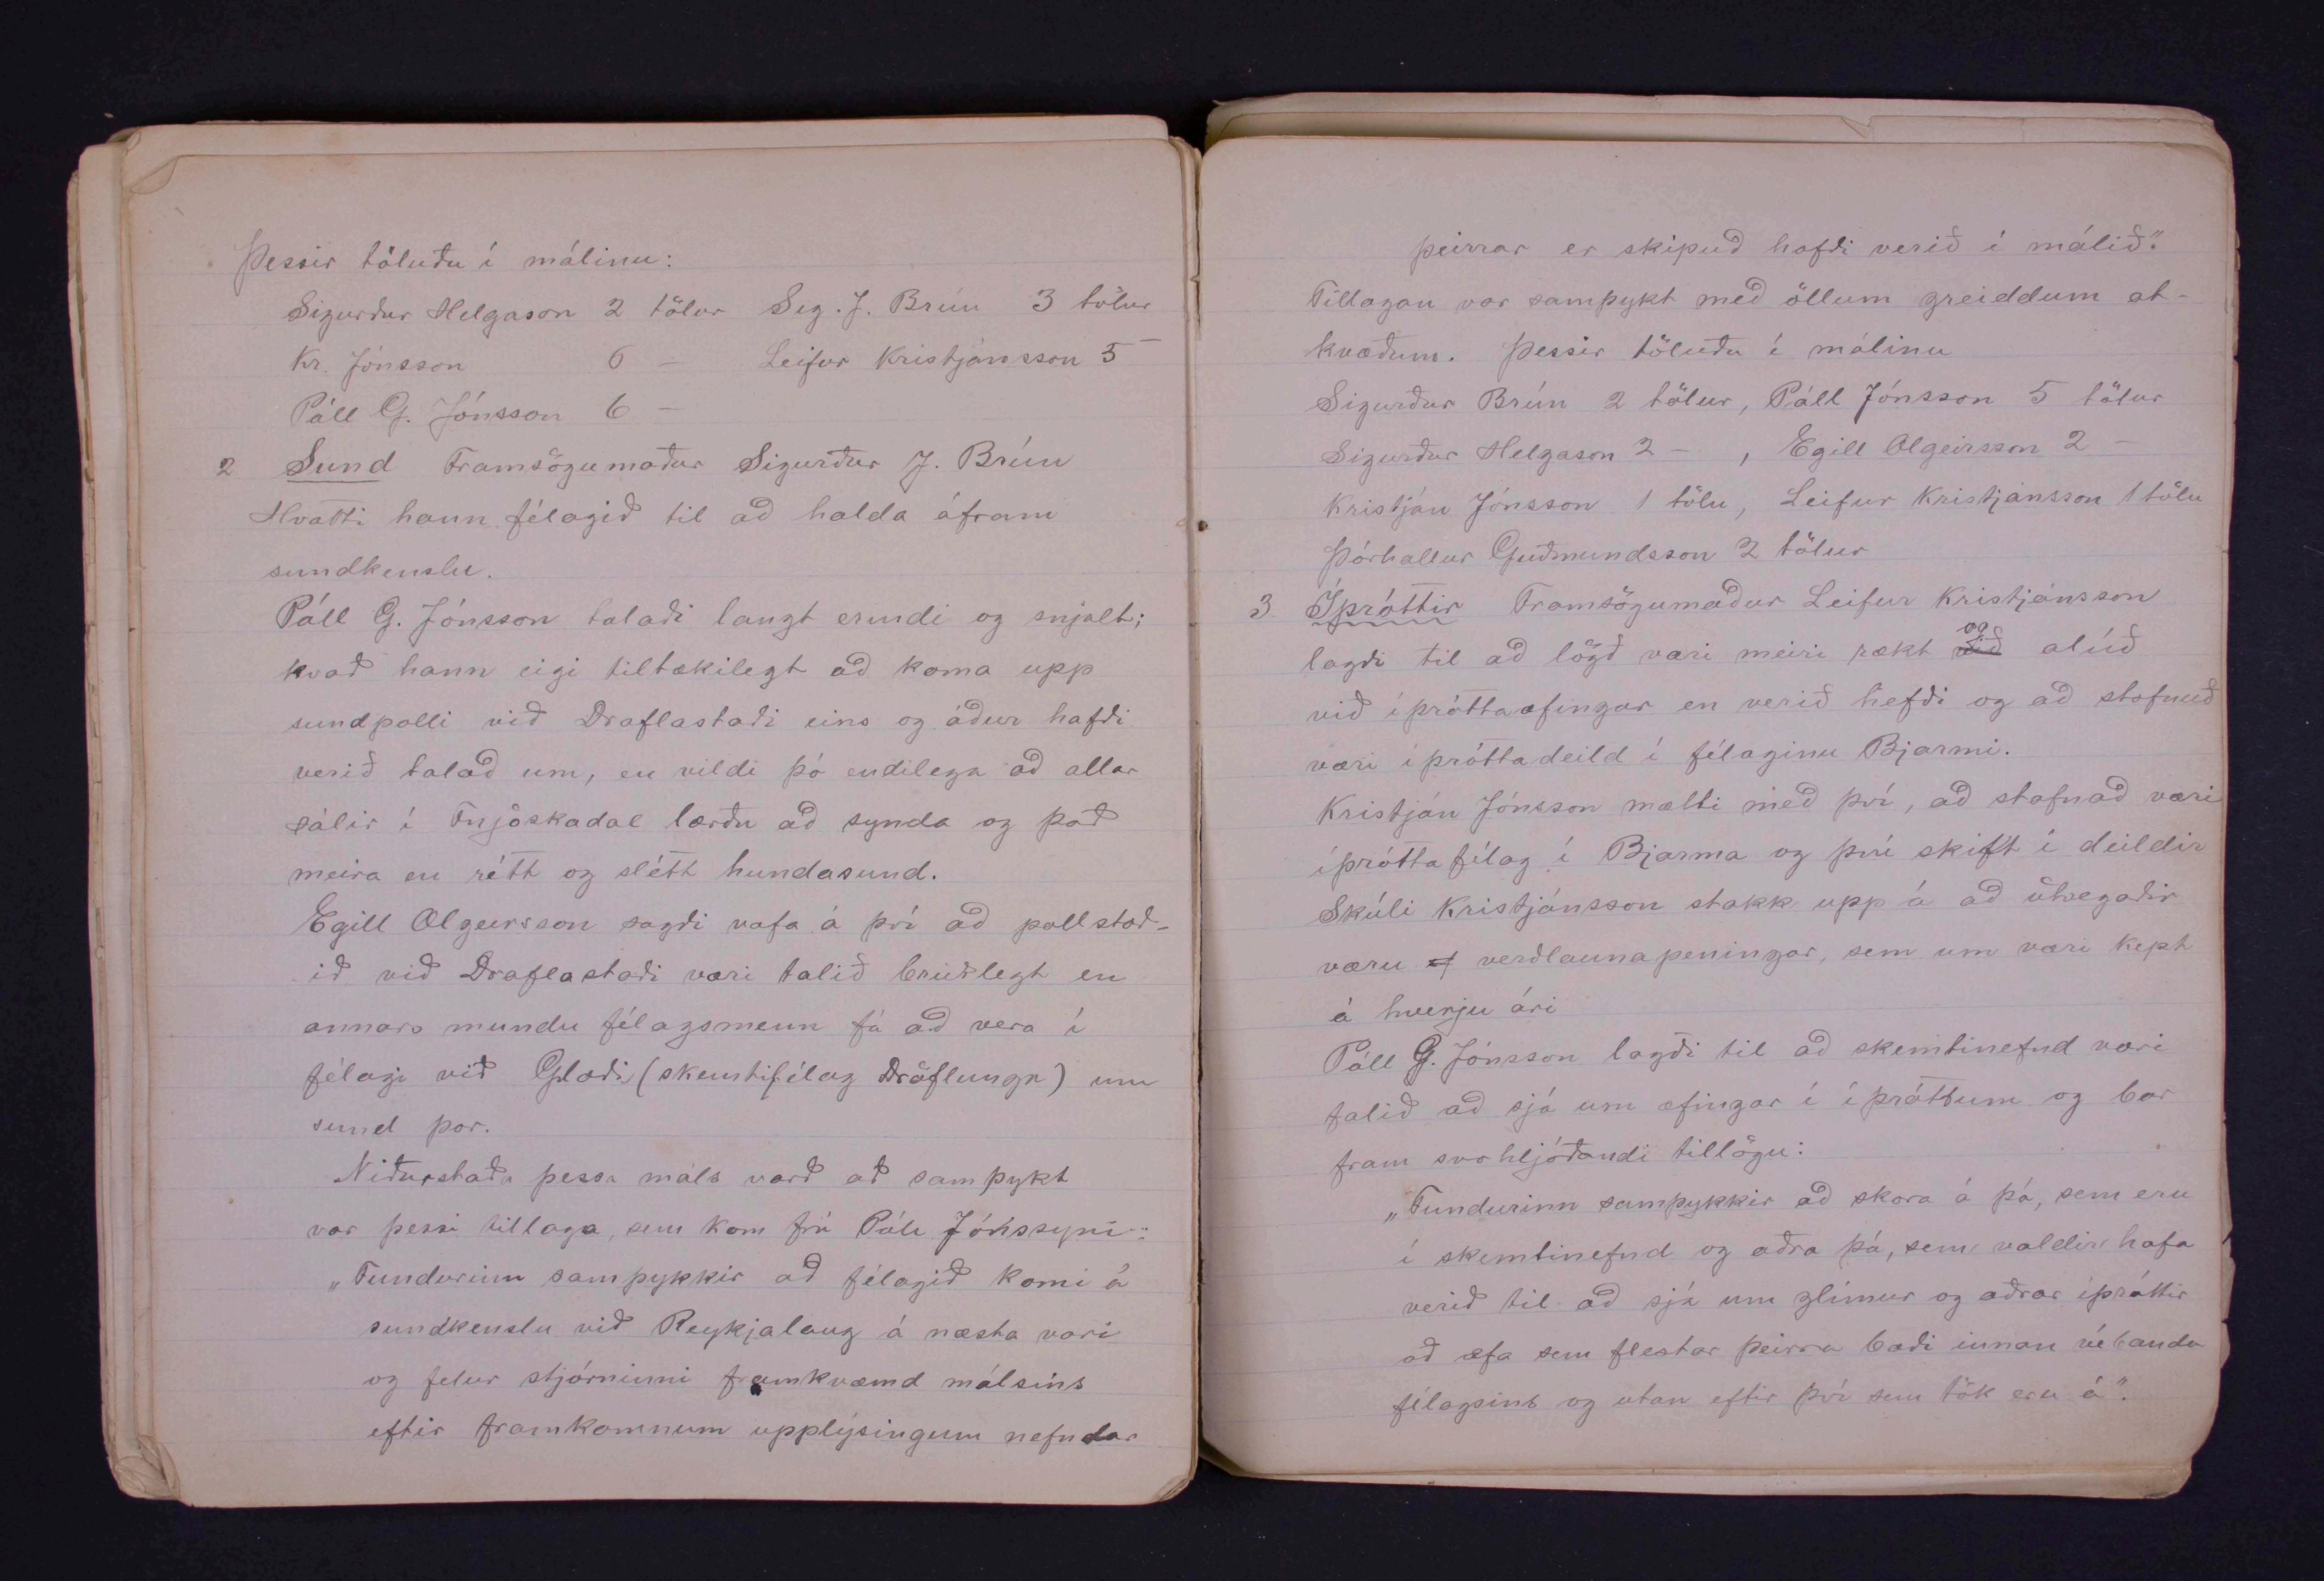 Þessir töluðu í málinu:
Sigurður Helgason 2 tölur Sig. J. Brún 3 tölur
Kr. Jónsson 6 — Leifur Kristjánsson 5 —
Páll G. Jónsson 6 —
2 Sund Framsögumaður Sigurður J. Brún
Hvatti hann félagið til að halda áfram
sundkenslu.
Páll G. Jónsson talaði langt erindi og snjalt;
kvað hann eigi tiltækilegt að koma upp
sundpolli við Draflastaði eins og áður hafði
verið talað um, en vildi þó endilega að allar
sálir í Fnjóskadal lærðu að synda og það
meira en rétt og slétt hundasund.
Egill Olgeirsson sagði vafa á því að pollstæð-
ið við Draflastaði væri talið brúðlegt en
annars mundu félagsmenn fá að vera í
félagi við Glæði (skemtifélag Dräflunga) um
sund þar.
Niðurstaða þessa máls varð að samþykt
var þessi tillaga, sem kom frá Páli Jónssyni:
„Fundurinn samþykkir að félagið komi á
sundkenslu við Reykjalaug á næsta vori
og felur stjórninni framkvæmd málsins
eftir framkomnum upplýsingum nefndar
þeirrar er skipuð hafði verið í málið".
Tillagan var samþykt með öllum greiddum at-
kvæðum. Þessir töluðu í málinu
Sigurður Brún 2 tölur, Páll Jónsson 5 tölur
Sigurður Helgason 2 — , Egill Olgeirsson 2 —
Kristján Jónsson 1 tölu, Leifur Kristjánsson 1 tölu
Þórhallur Guðmundsson 2 tölur
3 Íþróttir Framsögumaður Leifur Kristjánsson
lagði til að lögð væri meiri rækt við og alúð
við íþróttaæfingar en verið hefði og að stofnuð
væri íþróttadeild í félaginu Bjarmi.
Kristján Jónsson mælti með því, að stofnað væri
íþróttafélag í Bjarma og því skift í deildir
Skúli Kristjánsson stakk upp á að útvegaðir
væru verðlaunapeningar, sem um væri kept
á hverju ári
Páll G. Jónsson lagði til að skemtinefnd væri
falið að sjá um æfingar í íþróttum og bar
fram svohljóðandi tillögu:
„Fundurinn samþykkir að skora á þá, sem eru
í skemtinefnd og aðra þá, sem valdir hafa
verið til að sjá um glímur og aðrar íþróttir
að æfa sem flestar þeirra bæði innan vébanda
félagsins og utan eftir því sem tök eru á".